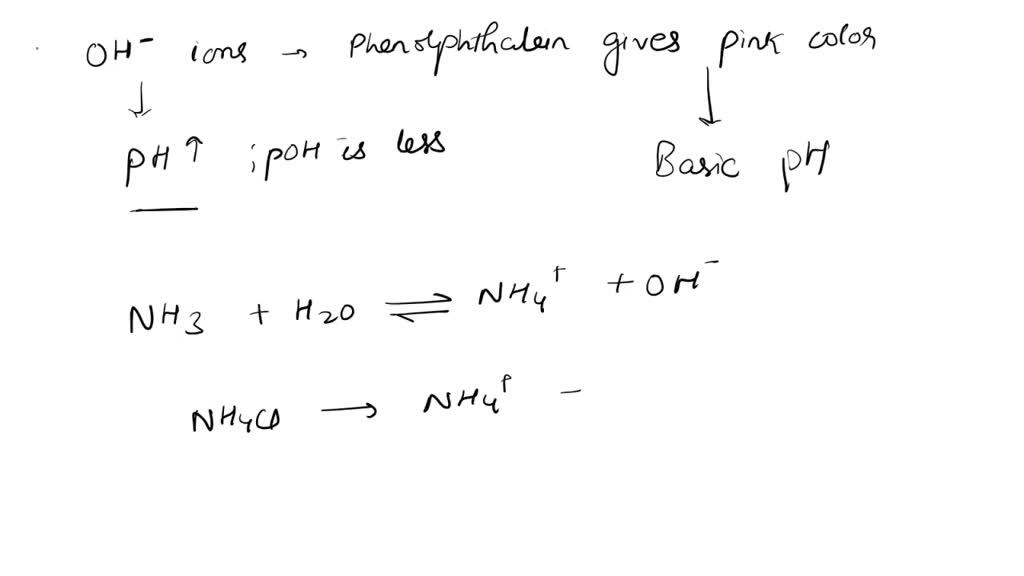 OH⁻ ions → Phenolphthalein gives pink color
↓ ↓
pH ↑ ; pOH is less Basic pH
NH3 + H2O ⇌ NH4⁺ + OH⁻
NH4Cl → NH4⁺ –